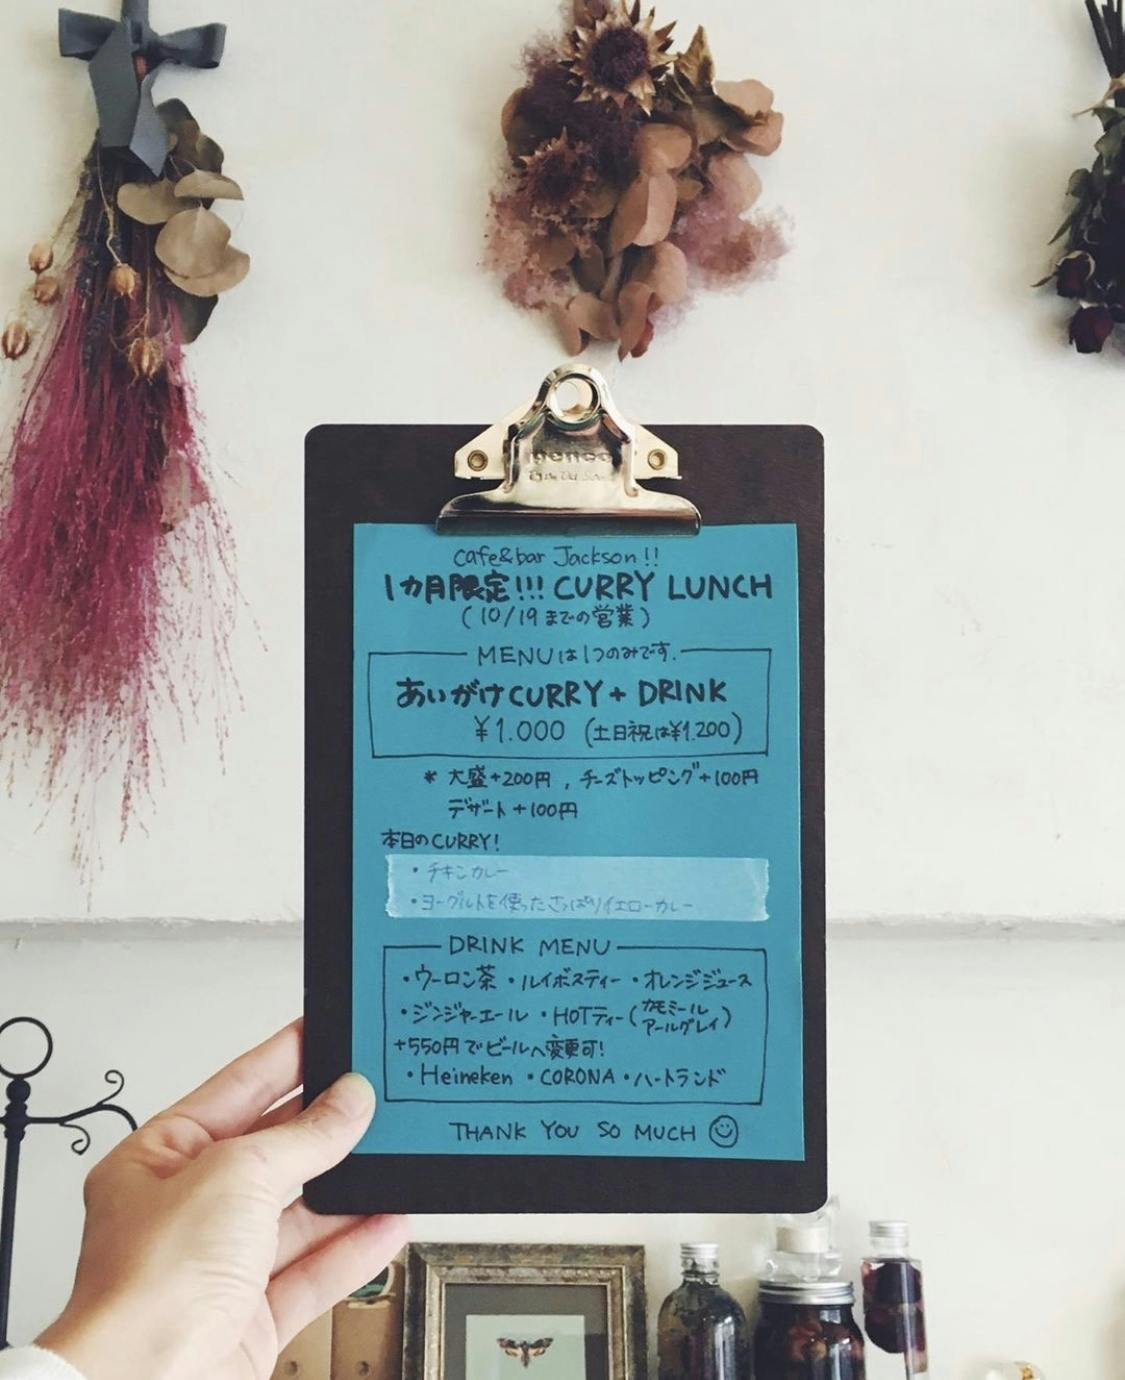 penco
cafe&bar Jackson!!
1カ月限定!!! CURRY LUNCH
(10/19までの営業)
MENUは1つのみです.
あいがけCURRY+ DRINK
¥1.000 (土日祝は¥1.200)
* 大盛+200円, チーズトッピング+100円
デザート+100円
本日のCURRY!
・チキンカレー
・ヨーグルトを使ったさっぱりイエローカレー
DRINK MENU
・ウーロン茶 ・ルイボスティー ・オレンジジュース
・ジンジャーエール ・HOTティー(カモミール アールグレイ)
+550円でビールへ変更可!
・Heineken ・CORONA ・ハートランド
THANK YOU SO MUCH